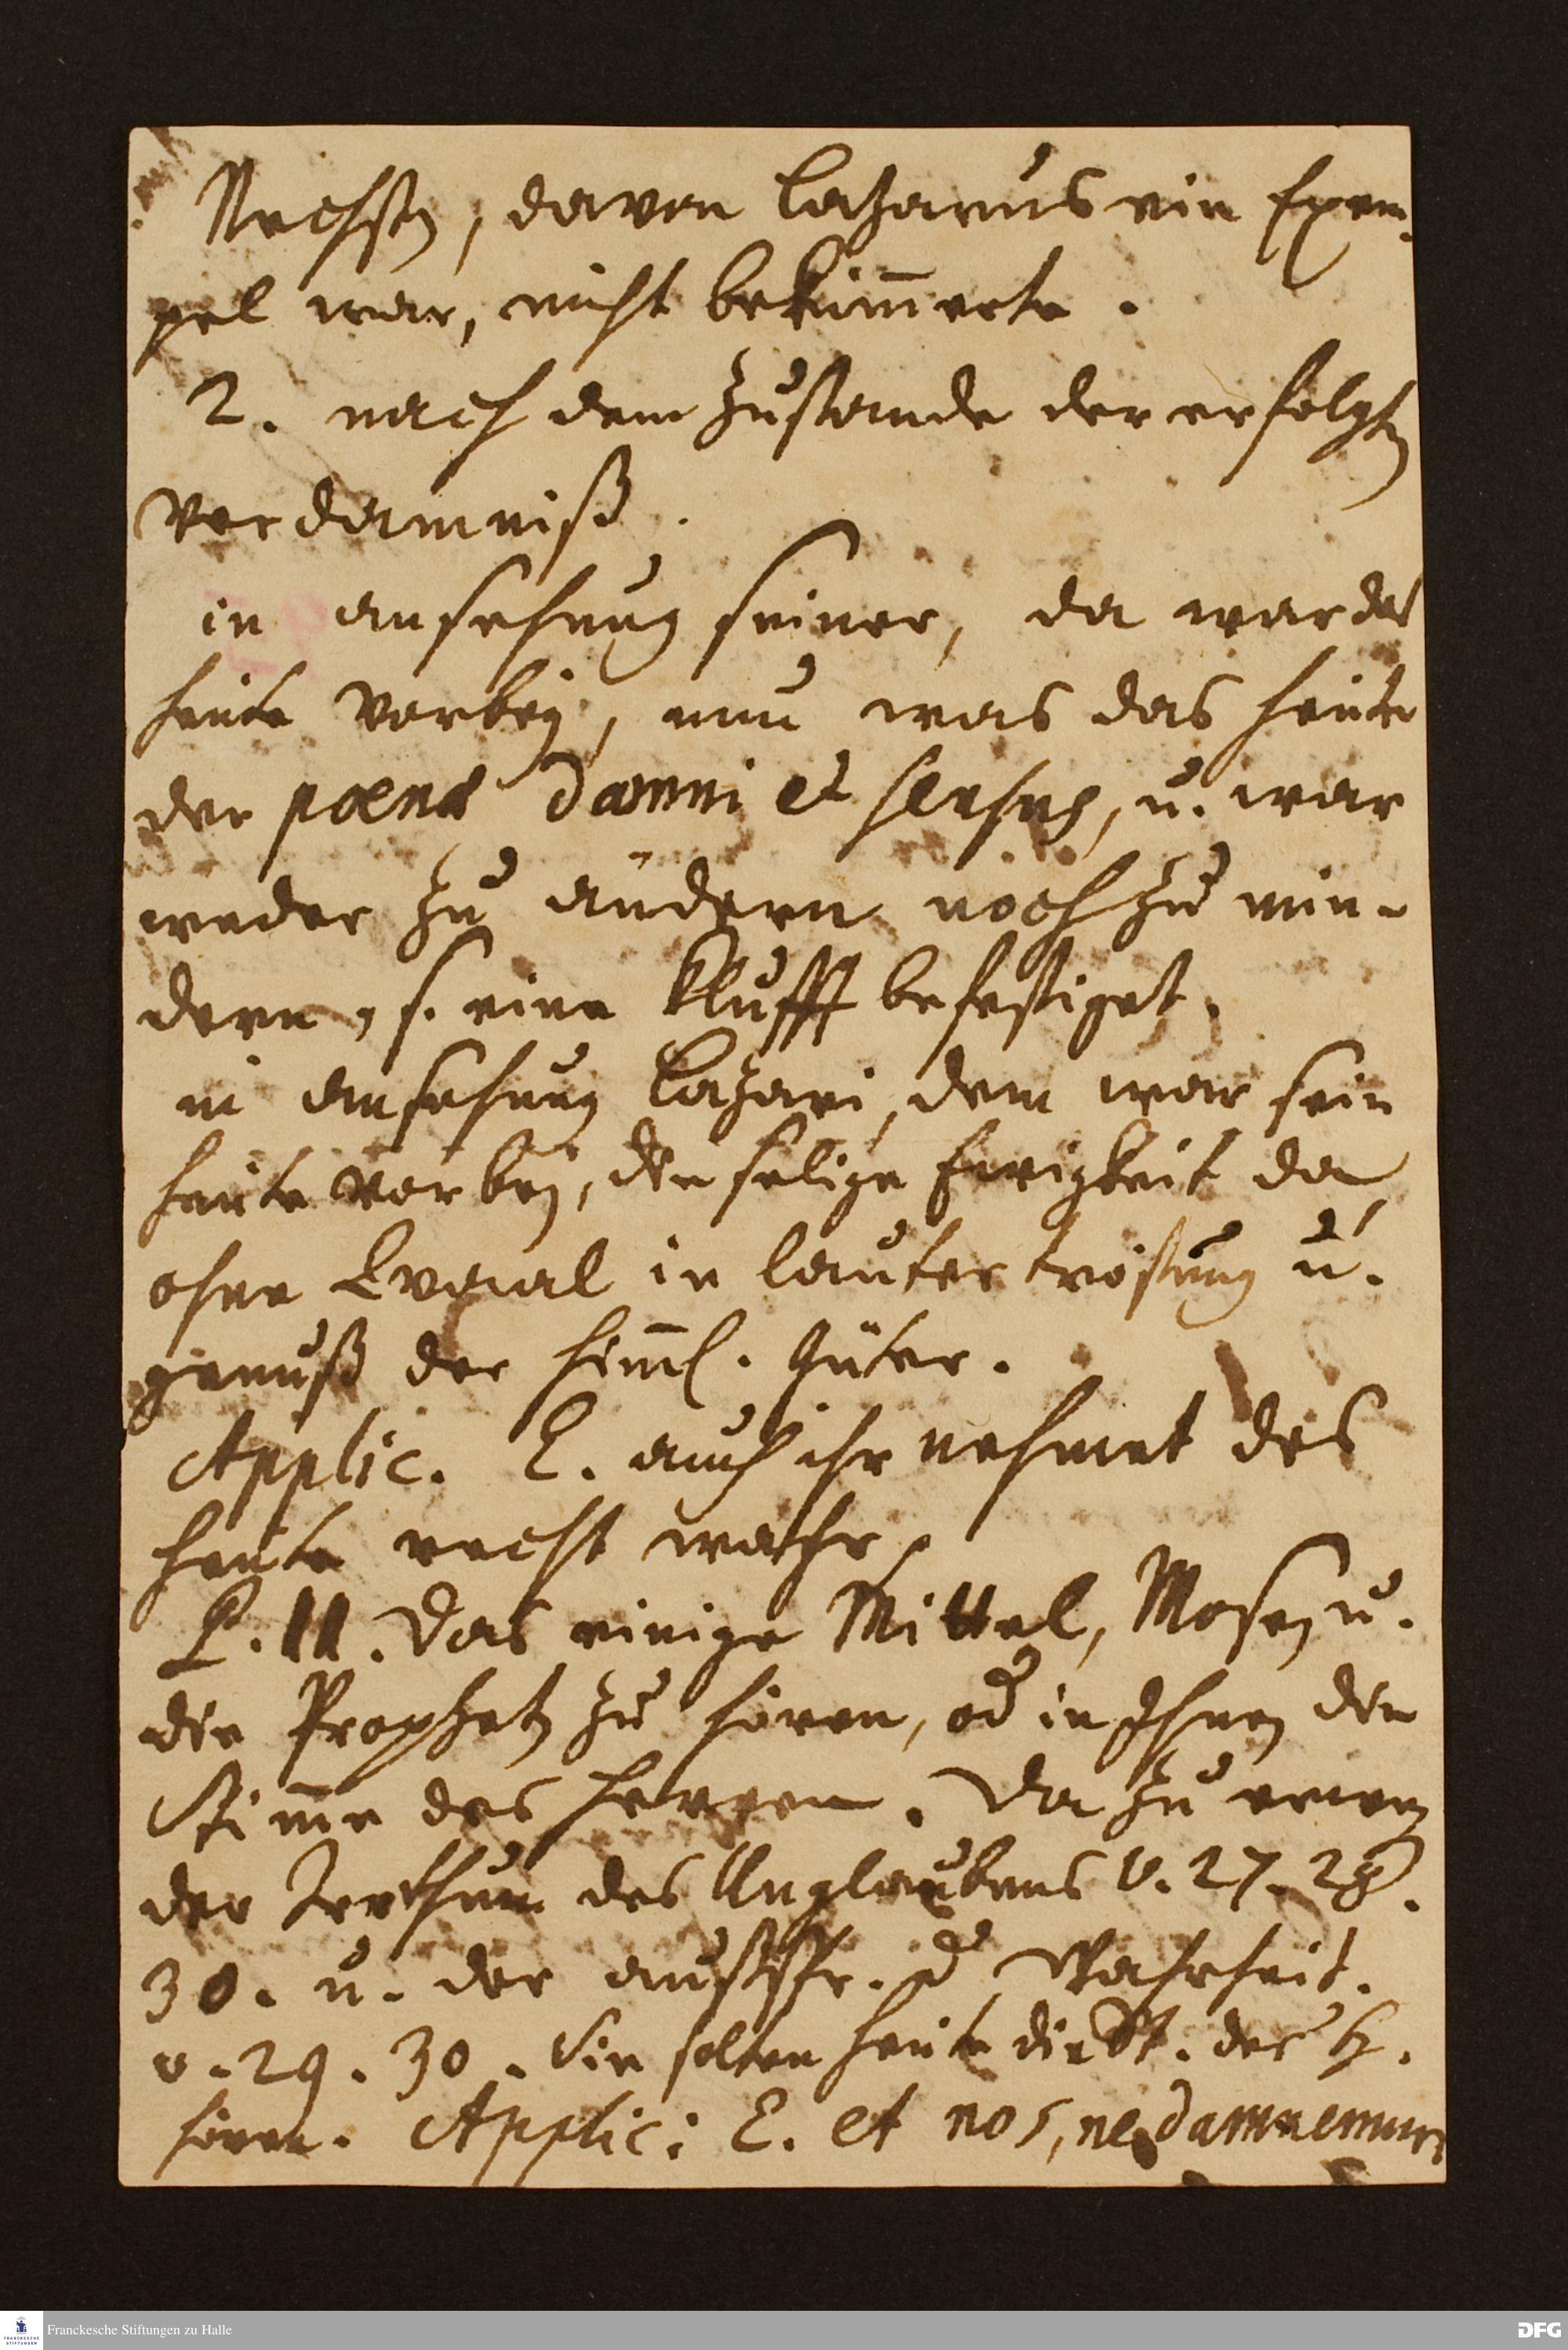 Nechsten, davon Lazarus ein Exem-
pel war, nicht bekümmerte.
2. nach dem Zustande der erfolgten
Verdamniß.
in ansehung seiner, da war das
heute vorbey, nun was das heute
der poenae damni et sensus, u. war
weder zu ändern noch zu min-
dern, s. eine Klufft befestiget.
in ansehung Lazari, dem war sein
heute vorbey, die selige Ewigkeit da,
ohne Qvaal in lauter tröstung u.
genuß der himml. Güter.
Applic. E. auch ihr nehmet des
heute recht wahr.
P. II. Das einige Mittel, Mosen u.
die Propheten zu hören, od in Ihnen die
Stimme des Herren. Dazu
der Irrthum des Unglaubens v. 27. 28.
30. u. der d Wahrheit.
v. 29. 30. Sie solten heute die St. des H.
hören. Applic: E. et nos, ne damnemur
Franckesche Stiftungen zu Halle
FRANCKESCHE STIFTUNGEN
DFG